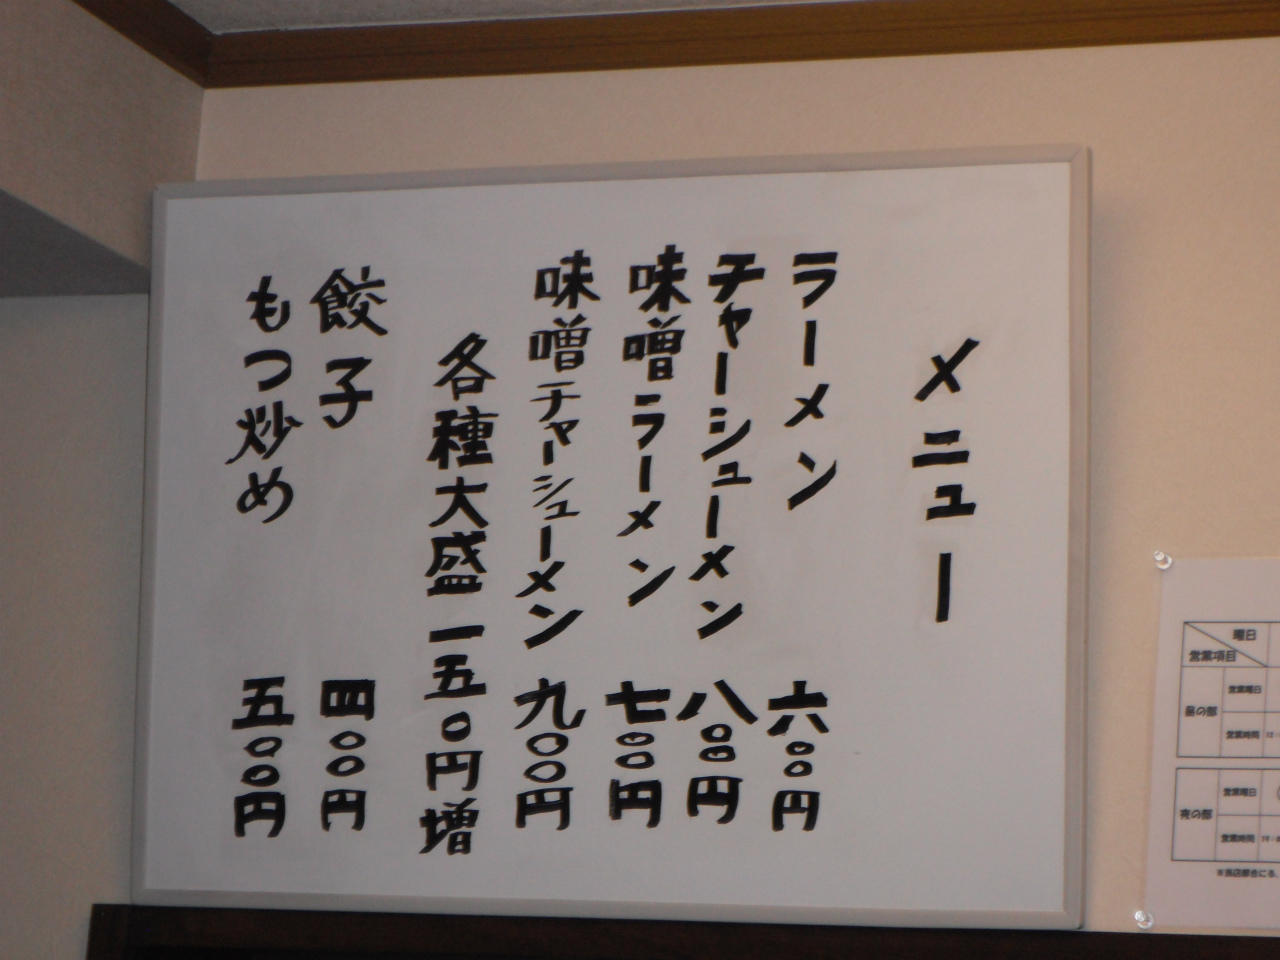 メニュー
ラーメン 六〇〇円
チャーシューメン 八〇〇円
味噌ラーメン 七〇〇円
味噌チャーシューメン 九〇〇円
各種大盛一五〇円増
餃子 四〇〇円
もつ炒め 五〇〇円
曜日
営業項目
昼の部
営業曜日
営業時間
夜の部
営業曜日
営業時間